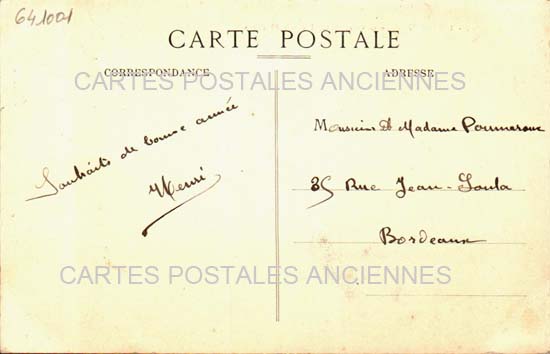 641001
CARTE POSTALE
CORRESPONDANCE
ADRESSE
CARTES POSTALES ANCIENNES
Souhaits de bonne année
Henri
Monsieur et Madame
35 Rue Jean-Soula
Bordeaux
CARTES POSTALES ANCIENNES